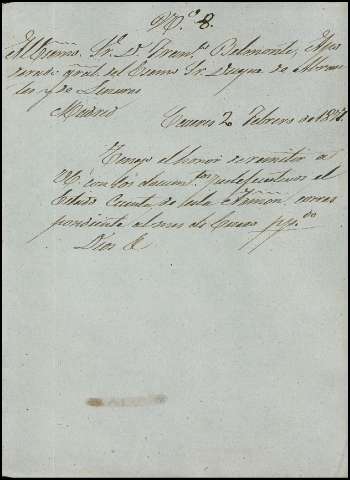 N.º 8.
Al Excmo. Sr. D. Fran.co Belmonte, Apo
derado gral. del Excmo Sr. Duque de Abran
tes y de Linares
Madrid Caceres 2 Febrero de
Tengo el honor de remitir a
V. con los docum.tos justificativos el
Estado Cuenta de esta Admon. corres
pondiente al mes de Enero pp.do
Dios &